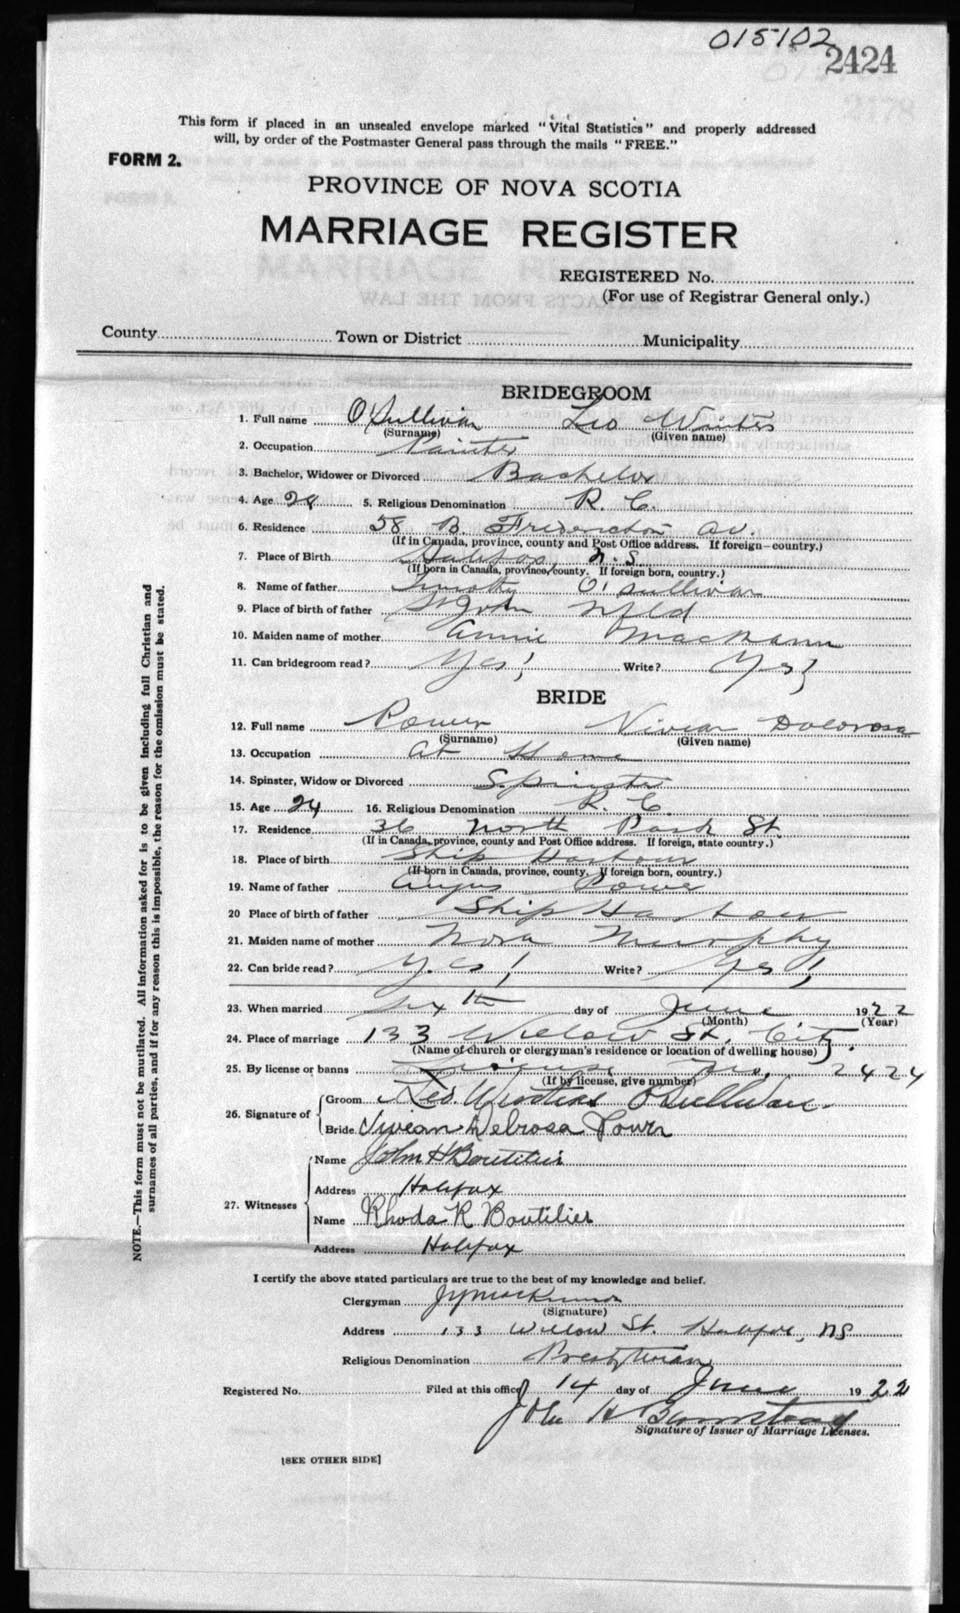 015102
2424
This form if placed in an unsealed envelope marked "Vital Statistics" and properly addressed
will, by order of the Postmaster General pass through the mails "FREE."
FORM 2.
PROVINCE OF NOVA SCOTIA
MARRIAGE REGISTER
REGISTERED No.
(For use of Registrar General only.)
County Town or District Municipality
BRIDEGROOM
1. Full name O'Sullivan Leo
(Surname) (Given name)
2. Occupation Painter
3. Bachelor, Widower or Divorced Bachelor
4. Age 28 5. Religious Denomination R. C.
6. Residence 58 B. Fredericton Av.
(If in Canada, province, county and Post Office address. If foreign—country.)
7. Place of Birth Halifax N S
(If born in Canada, province, county. If foreign born, country.)
8. Name of father Timothy O'Sullivan
9. Place of birth of father St John Nfld
10. Maiden name of mother Annie
11. Can bridegroom read? Yes! Write? Yes!
BRIDE
12. Full name Power Vivean Dolorosa
(Surname) (Given name)
13. Occupation at Home
14. Spinster, Widow or Divorced Spinster
15. Age 24 16. Religious Denomination R. C.
17. Residence 36 North Park St.
(If in Canada, province, county and Post Office address. If foreign, state country.)
18. Place of birth Ship Harbour
(If born in Canada, province, county. If foreign born, country.)
19. Name of father Angus Power
20 Place of birth of father Ship Harbour
21. Maiden name of mother Nora Murphy
22. Can bride read? Yes! Write? Yes!
23. When married Sixth day of June 1922
(Month) (Year)
24. Place of marriage 133 Willow St. City.
(Name of church or clergyman's residence or location of dwelling house)
25. By license or banns License No. 2424
(If by license, give number)
26. Signature of
Groom Leo O'Sullivan
Bride Vivean Delrosa Power
27. Witnesses
Name John H Boutilier
Address Halifax
Name Rhoda R Boutilier
Address Halifax
I certify the above stated particulars are true to the best of my knowledge and belief.
Clergyman
(Signature)
Address 133 Willow St. Halifax, NS
Religious Denomination Presbyterian
Registered No. Filed at this office 14 day of June 1922
John H Barnstead
Signature of Issuer of Marriage Licenses.
[SEE OTHER SIDE]
NOTE.—This form must not be mutilated. All information asked for is to be given including full Christian and
surnames of all parties, and if for any reason this is impossible, the reason for the omission must be stated.